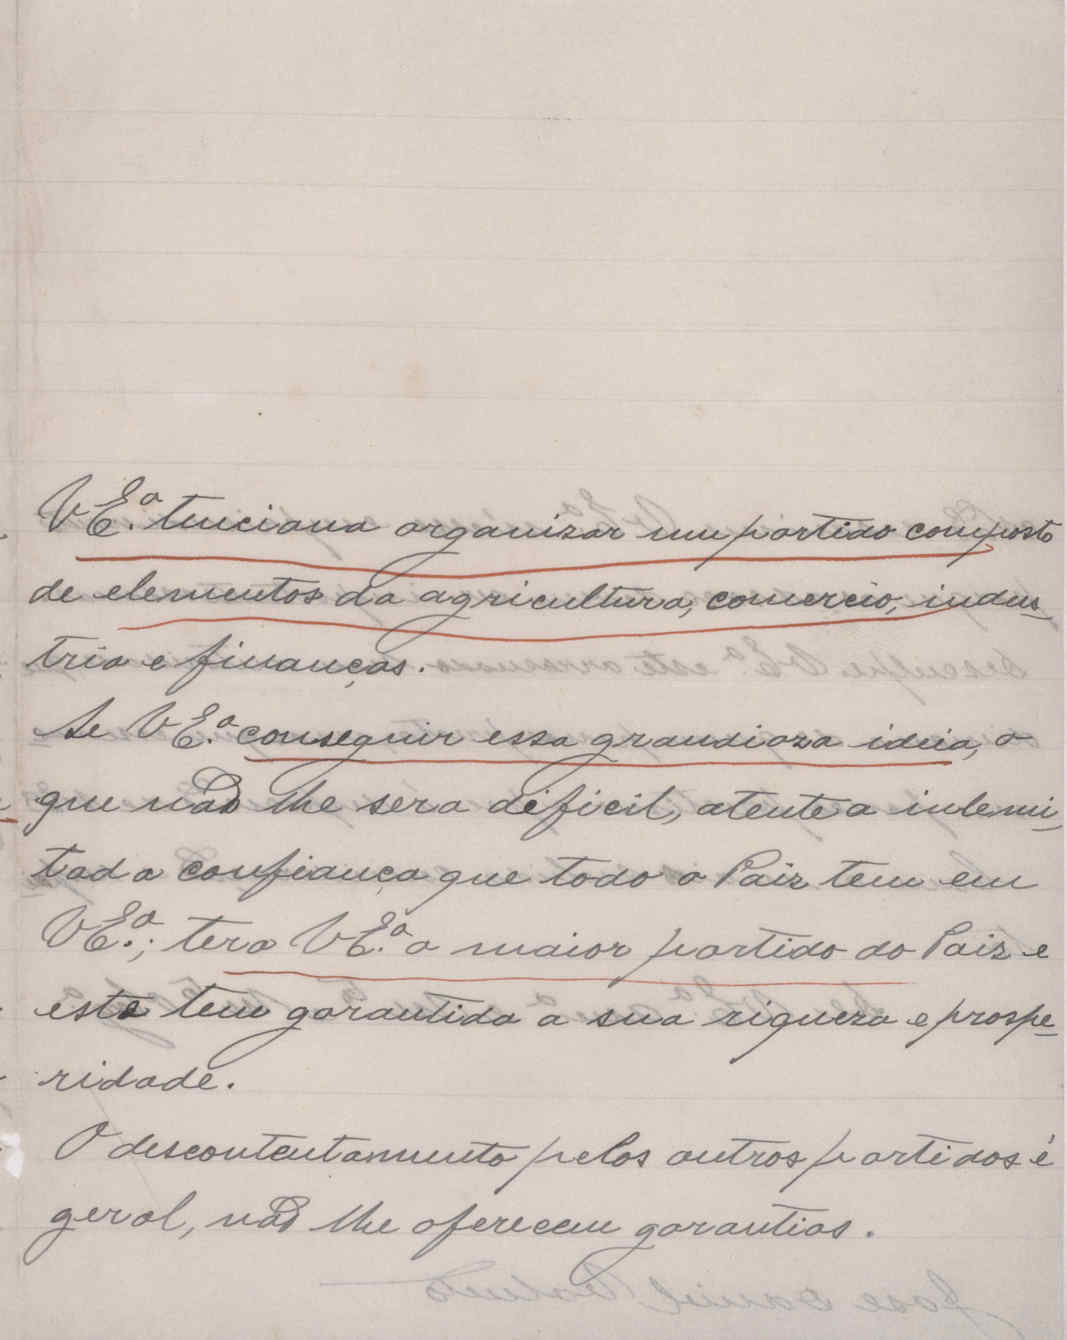 V Ex.ª tenciona organizar um partido composto
de elementos da agricultura, comercio, indus_
tria e finanças.
Se V Ex.ª conseguir essa grandioza ideia, o
que não lhe sera dificil, atente a inlemi_
tada confiança que todo o Paiz tem em
V Ex.ª; tera V Ex.ª o maior partido do Paiz e
este tem garantida a sua riqueza e prospe_
ridade.
O descontentamento pelos outros partidos é
geral, não lhe oferecem garantias.